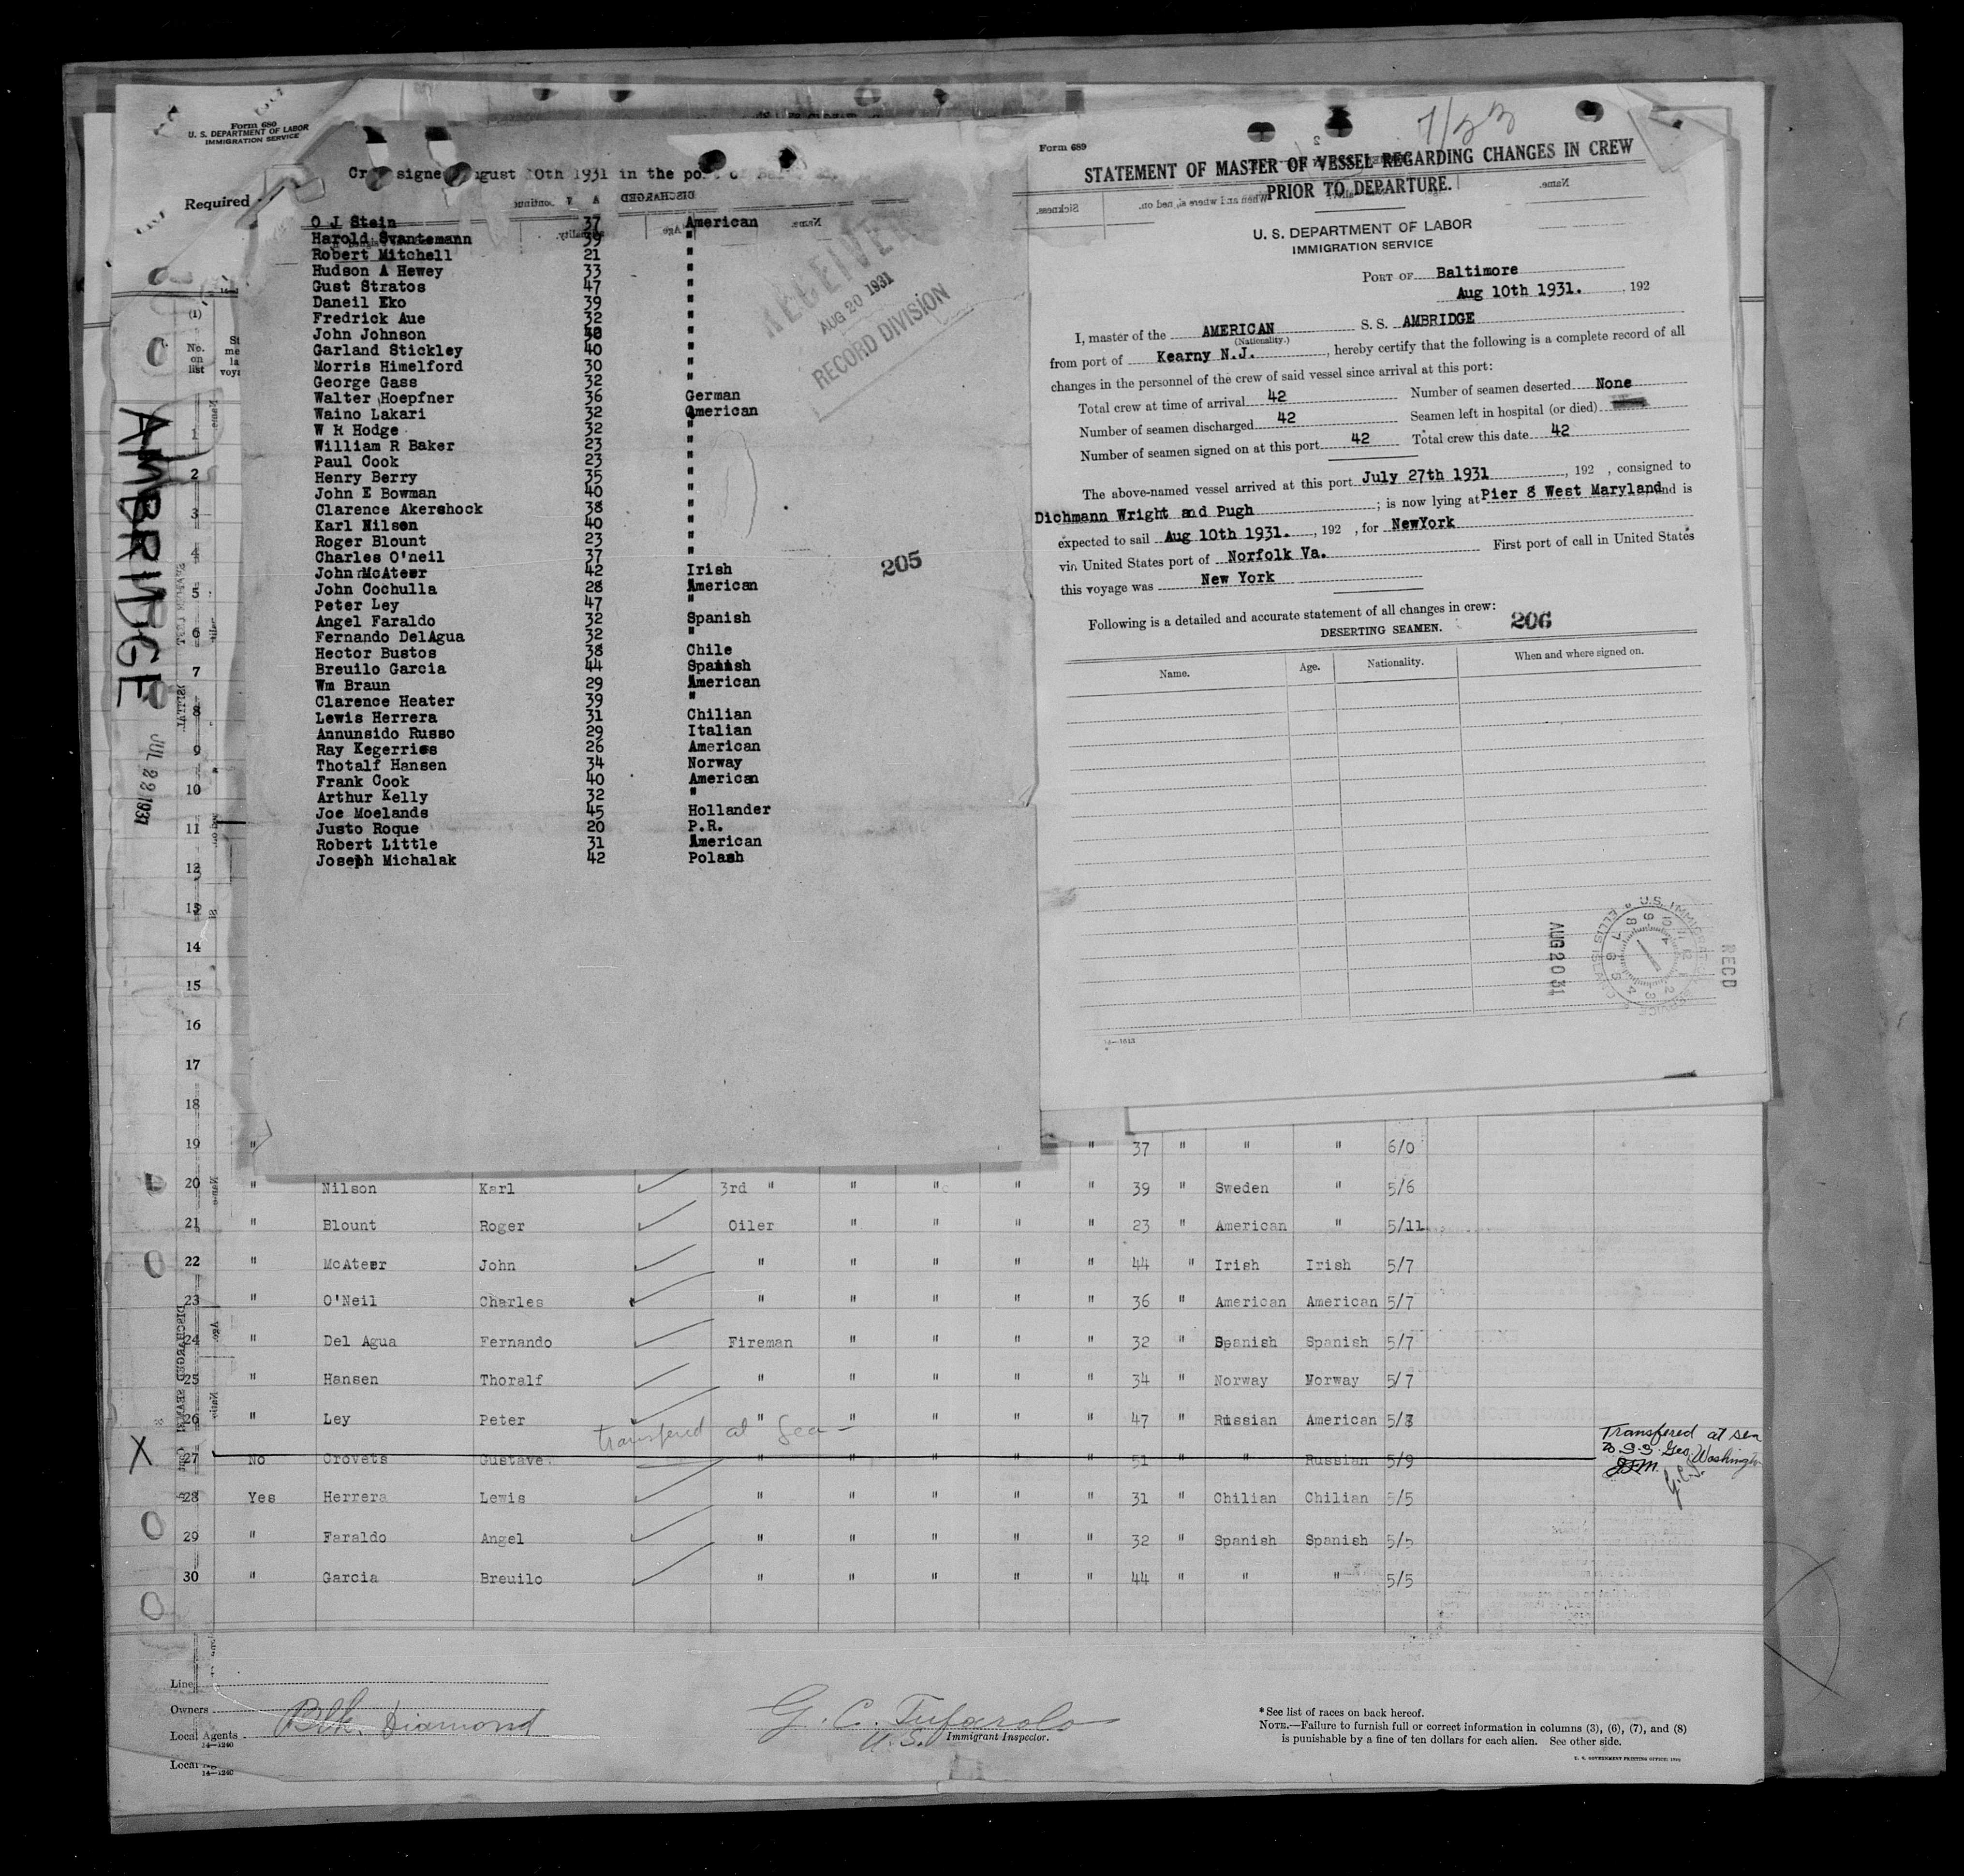 Form 680
U. S. DEPARTMENT OF LABOR
IMMIGRATION SERVICE
Required
AMBRIDGE
JUL 22 1931
(1)
No.
on
list
1
2
3
4
5
6
7
8
9
10
11
12
13
14
15
16
17
18
signed 1931 in the
DISCHARGED
O J Stein 37 American
Harold Svantemann 39 "
Robert Mitchell 21 "
Hudson A Hewey 33 "
Gust Stratos 47 "
Daneil Eko 39 "
Fredrick Aue 32 "
John Johnson "
Garland Stickley 40 "
Morris Himelford 30 "
George Gass 32 "
Walter Hoepfner 36 German
Waino Lakari 32 American
W R Hodge 32 "
William R Baker 23 "
Paul Cook 23 "
Henry Berry 35 "
John E Bowman 40 "
Clarence Akershock 38 "
Karl Nilsen 40 "
Roger Blount 23 "
Charles O'neil 37 "
John McAteer 42 Irish
John Cochulla 28 American
Peter Ley 47 "
Angel Faraldo 32 Spanish
Fernando DelAgua 32 "
Hector Bustos 38 Chile
Breuilo Garcia 44 Spanish
Wm Braun 29 American
Clarence Heater 39 "
Lewis Herrera 31 Chilian
Annunsido Russo 29 Italian
Ray Kegerries 26 American
Thotalf Hansen 34 Norway
Frank Cook 40 American
Arthur Kelly 32 "
Joe Moelands 45 Hollander
Justo Roque 20 P.R.
Robert Little 31 American
Joseph Michalak 42 Polash
RECEIVED
AUG 20 1931
RECORD DIVISION
205
Form 689
STATEMENT OF MASTER OF VESSEL REGARDING CHANGES IN CREW
PRIOR TO DEPARTURE.
U. S. DEPARTMENT OF LABOR
IMMIGRATION SERVICE
PORT OF Baltimore
Aug 10th 1931. , 192
I, master of the AMERICAN S. S. AMBRIDGE
(Nationality.)
from port of Kearny N.J. , hereby certify that the following is a complete record of all
changes in the personnel of the crew of said vessel since arrival at this port:
Total crew at time of arrival 42 Number of seamen deserted None
Number of seamen discharged 42 Seamen left in hospital (or died)
Number of seamen signed on at this port 42 Total crew this date 42
The above-named vessel arrived at this port July 27th 1931 , 192 , consigned to
Dichmann Wright and Pugh ; is now lying at Pier 8 West Maryland and is
expected to sail Aug 10th 1931. , 192 , for NewYork
via United States port of Norfolk Va. First port of call in United States
this voyage was New York
Following is a detailed and accurate statement of all changes in crew:
DESERTING SEAMEN. 206
Name. Age. Nationality. When and where signed on.
AUG 20 31
RECD
14—1613
19 " " 37 " " " 6/0
20 " Nilson Karl 3rd " " " " " 39 " Sweden " 5/6
21 " Blount Roger Oiler " " " " 23 " American " 5/11
22 " McAteer John " " " " " 44 " Irish Irish 5/7
23 " O'Neil Charles " " " " " 36 " American American 5/7
24 " Del Agua Fernando Fireman " " " " 32 " Spanish Spanish 5/7
25 " Hansen Thoralf " " " " " 34 " Norway Norway 5/7
26 " Ley Peter " " " " " 47 " Russian American 5/8
transfered at Sea
27 No Orovets Gustave " " " " " 51 " " Russian 5/9
Transfered at sea
to S.S. Geo. Washington
G.C.T.
28 Yes Herrera Lewis " " " " " 31 " Chilian Chilian 5/5
29 " Faraldo Angel " " " " " 32 " Spanish Spanish 5/5
30 " Garcia Breuilo " " " " " 44 " " " 5/5
Line
Owners
Local Agents Blk. Diamond
14—1240
Local
14—1240
G. C. Tufarolo
U.S. Immigrant Inspector.
* See list of races on back hereof.
NOTE.—Failure to furnish full or correct information in columns (3), (6), (7), and (8)
is punishable by a fine of ten dollars for each alien. See other side.